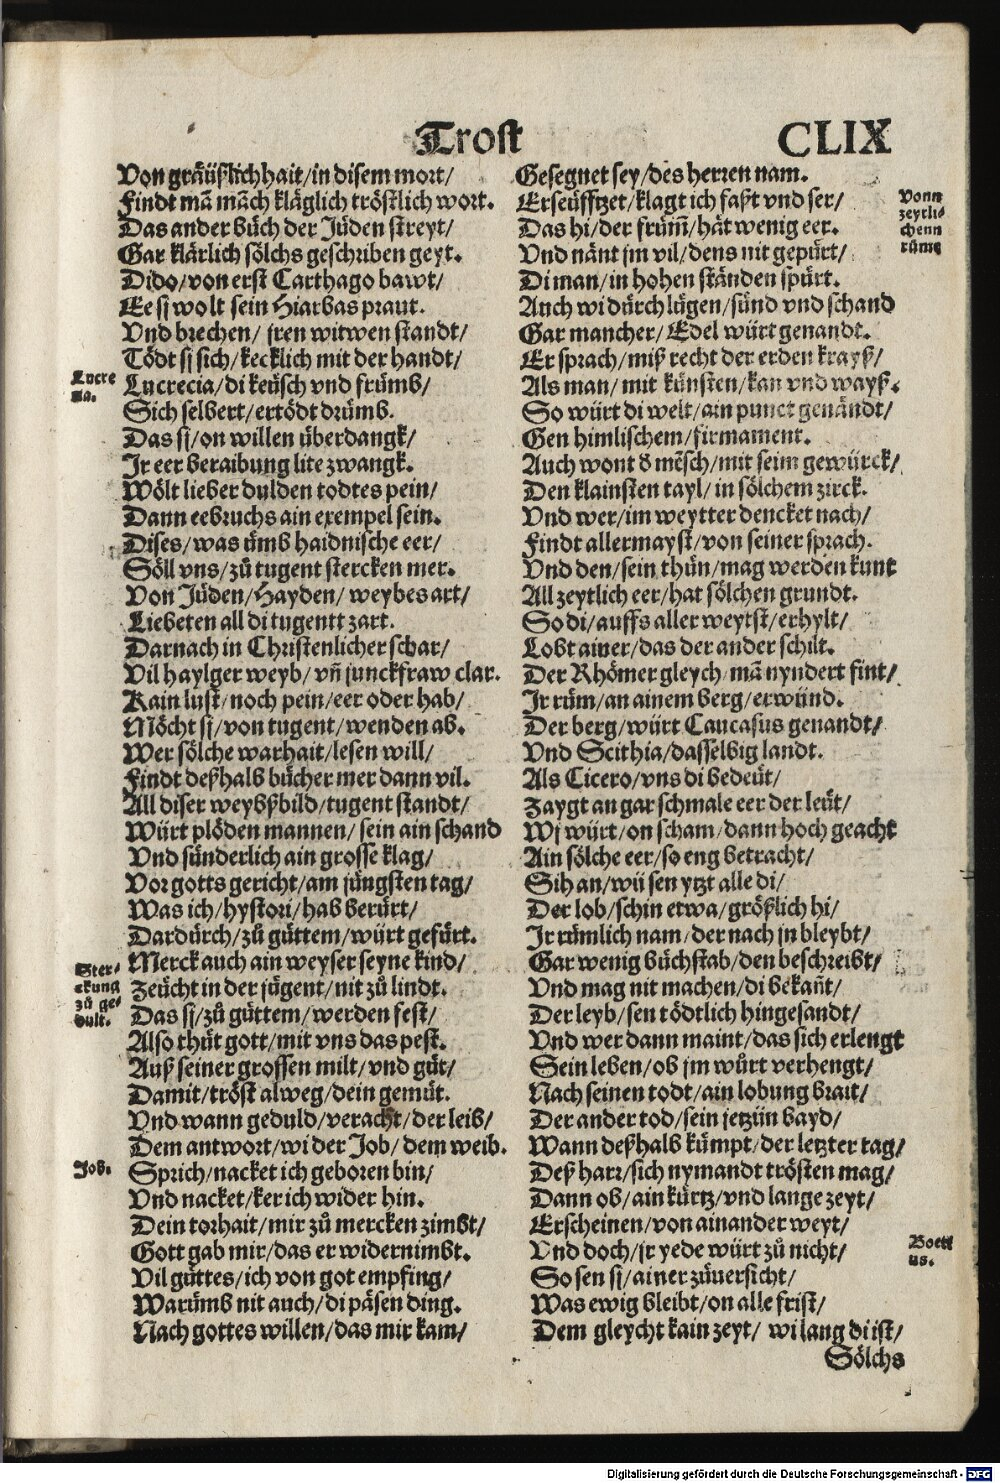 Trost
CLIX
Von gräüßlichhait/in disem mort/
Findt mā māch kläglich tröstlich wort.
Das ander bůch der Jüden streyt/
Gar klärlich sölchs geschriben geyt.
Dido/von erst Carthago bawt/
Ee si wolt sein Hiarbas praut.
Vnd brechen/ jren witwen standt/
Tödt sj sich/kecklich mit der handt/
Lucrecia/di keüsch vnd frümb/
Sich selbert/ertödt drümb.
Das sj/on willen überdangk/
Jr eer beraibung lite zwangk.
Wölt lieber dulden todtes pein/
Dann eebruchs ain exempel sein.
Dises/was ümb haidnische eer/
Söll vns/zů tugent stercken mer.
Von Jüden/Hayden/ weybes art/
Liebeten all di tugentt zart.
Darnach in Christenlicher schar/
Vil haylger weyb/ vn̄ junckfraw clar.
Kain lust/noch pein/eer oder hab/
Möcht sj/von tugent/wenden ab.
Wer sölche warhait/lesen will/
Findt deßhalb bücher mer dann vil.
All diser weybßbild/tugent standt/
Würt plöden mannen/ sein ain schand
Vnd sünderlich ain grosse klag/
Vor gotts gericht/am jüngsten tag/
Was ich/hystori/hab berürt/
Dardürch/zů gůttem/würt gefürt.
Merck auch ain weyser seyne kind/
Zeücht in der jügent/nit zů lindt.
Das sj/zů gůttem/werden fest/
Also thůt gott/mit vns das pest.
Auß seiner grossen milt/vnd gůt/
Damit/tröst alweg/dein gemůt.
Vnd wann geduld/veracht/der leib/
Dem antwort/wi der Job/ dem weib.
Sprich/nacket ich geboren bin/
Vnd nacket/ker ich wider hin.
Dein torhait/mir zů mercken zimbt/
Gott gab mir/das er widernimbt.
Vil gůttes/ich von got empfing/
Warümb nit auch/di päsen ding.
Nach gottes willen/das mir kam/
Lucre
tia.
Ster-
ckung
zů ge-
dult.
Job.
Gesegnet sey/des herren nam.
Erseüfftzet/klagt ich faßt vnd ser/
Das hi/der früm̄/hat wenig eer.
Vnd nänt jm vil/dens nit gepürt/
Di man/in hohen ständen spürt.
Auch wi dürch lügen/sünd vnd schand
Gar mancher/Edel würt genandt.
Er sprach/miß recht der erden krayß/
Als man/mit künsten/kan vnd wayß.
So würt di welt/ain punct genändt/
Gen himlischem/firmament.
Auch wont d mēsch/mit seim gewürck/
Den klainsten tayl/in sölchem zirck.
Vnd wer/im weytter dencket nach/
Findt allermayst/von seiner sprach.
Vnd den/sein thůn/mag werden kunt
All zeytlich eer/hat sölchen grundt.
So di/auffs aller weytst/erhylt/
Lobt ainer/das der ander schilt.
Der Rhömer gleych/mā nyndert fint/
Jr rům/an ainem berg/erwünd.
Der berg/würt Caucasus genandt/
Vnd Scithia/dasselbig landt.
Als Cicero/vns di bedeüt/
Zaygt an gar schmale eer der leüt/
Wj würt/on scham/dann hoch geacht
Ain sölche eer/so eng betracht/
Sih an/wü sen ytzt alle di/
Der lob/schin etwa/größlich hi/
Jr rümlich nam/der nach jn bleybt/
Gar wenig bůchstab/den beschreibt/
Vnd mag nit machen/di bekan̄t/
Der leyb/sen tödtlich hingesandt/
Vnd wer dann maint/das sich erlengt
Sein leben/ob jm würt verhengt/
Nach seinen todt/ain lobung brait/
Der ander tod/sein jetzün bayd/
Wann deßhalb kümpt/der letzter tag/
Deß harr/sich nymandt trösten mag/
Dann ob/ain kürtz/vnd lange zeyt/
Erscheinen/von ainander weyt/
Vnd doch/jr yede würt zů nicht/
So sen sj/ainer zůuersicht/
Was ewig bleibt/on alle frist/
Dem gleycht kain zeyt/ wi lang di ist/
Sölchs
Vonn
zeytli-
chenn
rüme
Boeti
us.
Digitalisierung gefördert durch die Deutsche Forschungsgemeinschaft - DFG